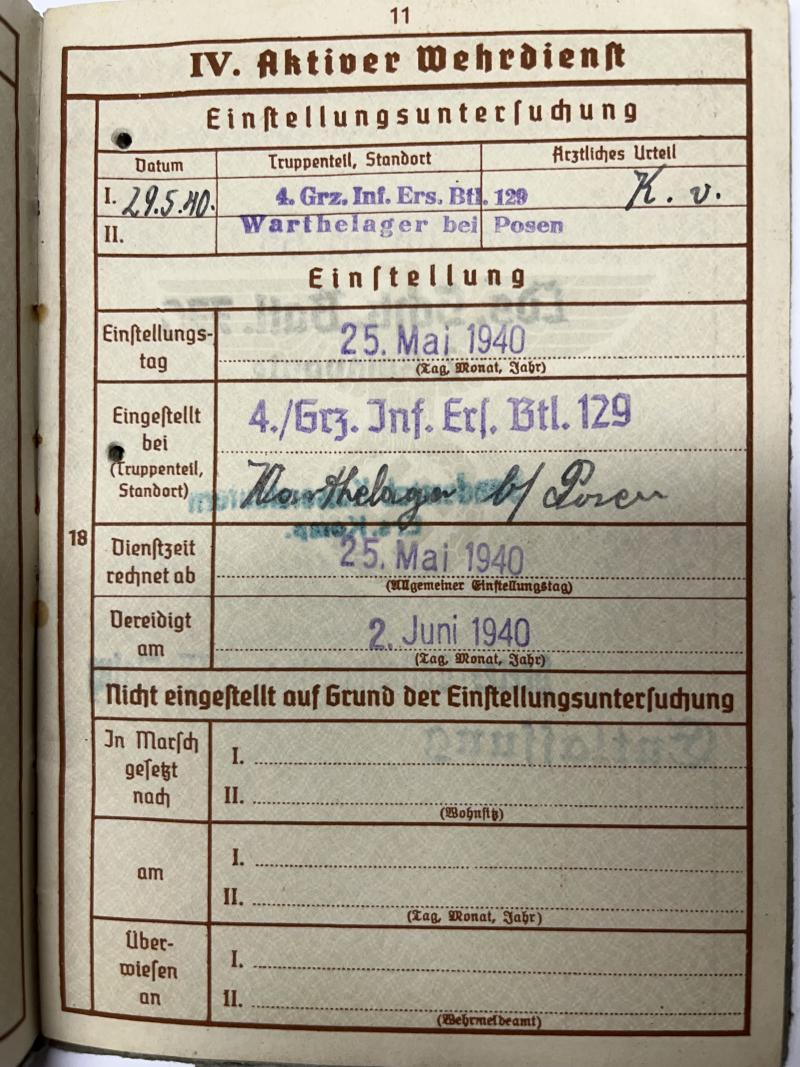 11
IV. Aktiver Wehrdienst
Einstellungsuntersuchung
Datum Truppenteil, Standort Ärztliches Urteil
I. 29.5.40. 4. Grz. Inf. Ers. Btl. 129 K. v.
II. Warthelager bei Posen
Einstellung
Einstellungs-
tag
25. Mai 1940
(Tag, Monat, Jahr)
Eingestellt
bei
(Truppenteil,
Standort)
4./Grz. Inf. Ers. Btl. 129
Warthelager b/ Posen
18
Dienstzeit
rechnet ab
25. Mai 1940
(Allgemeiner Einstellungstag)
Vereidigt
am
2. Juni 1940
(Tag, Monat, Jahr)
Nicht eingestellt auf Grund der Einstellungsuntersuchung
In Marsch
gesetzt
nach
I.
II.
(Wohnsitz)
am
I.
II.
(Tag, Monat, Jahr)
Über-
wiesen
an
I.
II.
(Wehrmeldeamt)